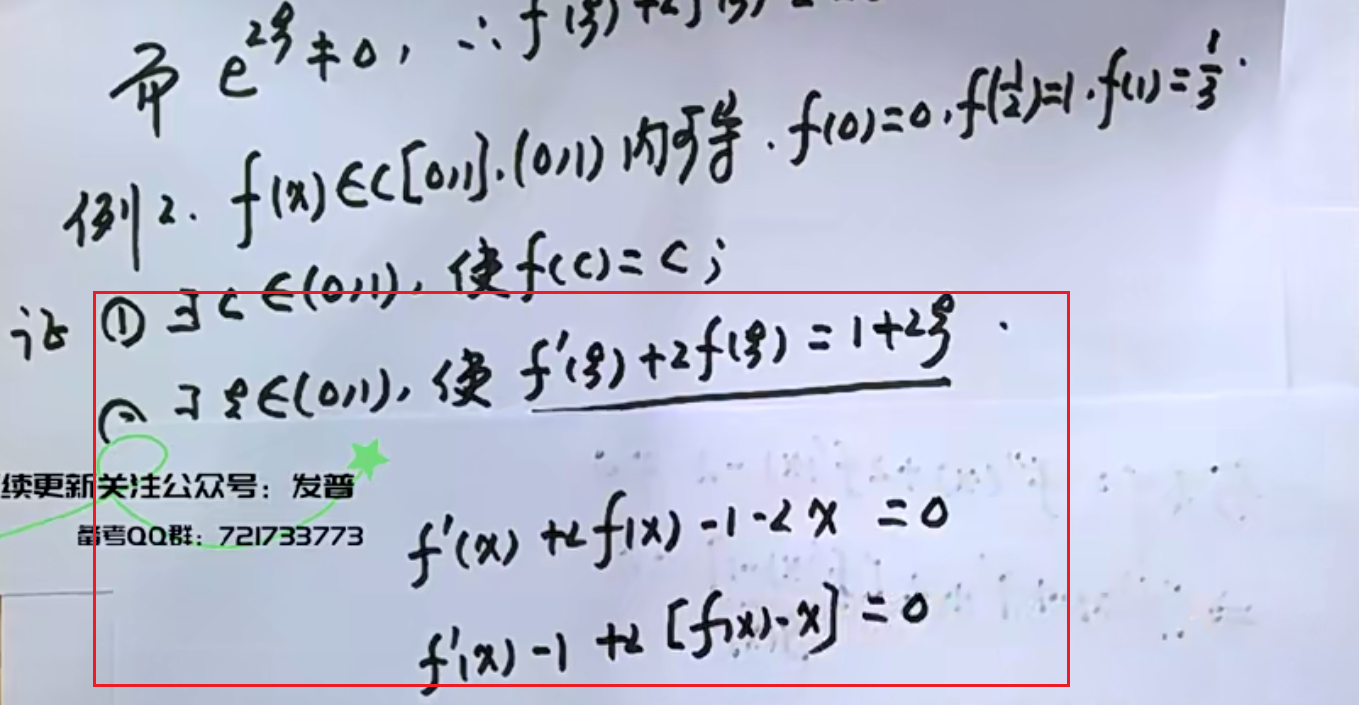 而 e^{2ξ}≠0, ∴ f'(ξ)+2f(ξ)
例2. f(x)∈C[0,1].(0,1)内可导. f(0)=0, f(1/2)=1. f(1)=1/3.
证 ① ∃c∈(0,1), 使 f(c)=c;
② ∃ξ∈(0,1), 使 f'(ξ)+2f(ξ)=1+2ξ.
续更新关注公众号：发普
备考QQ群：721733773
f'(x)+2f(x)-1-2x=0
f'(x)-1+2[f(x)-x]=0